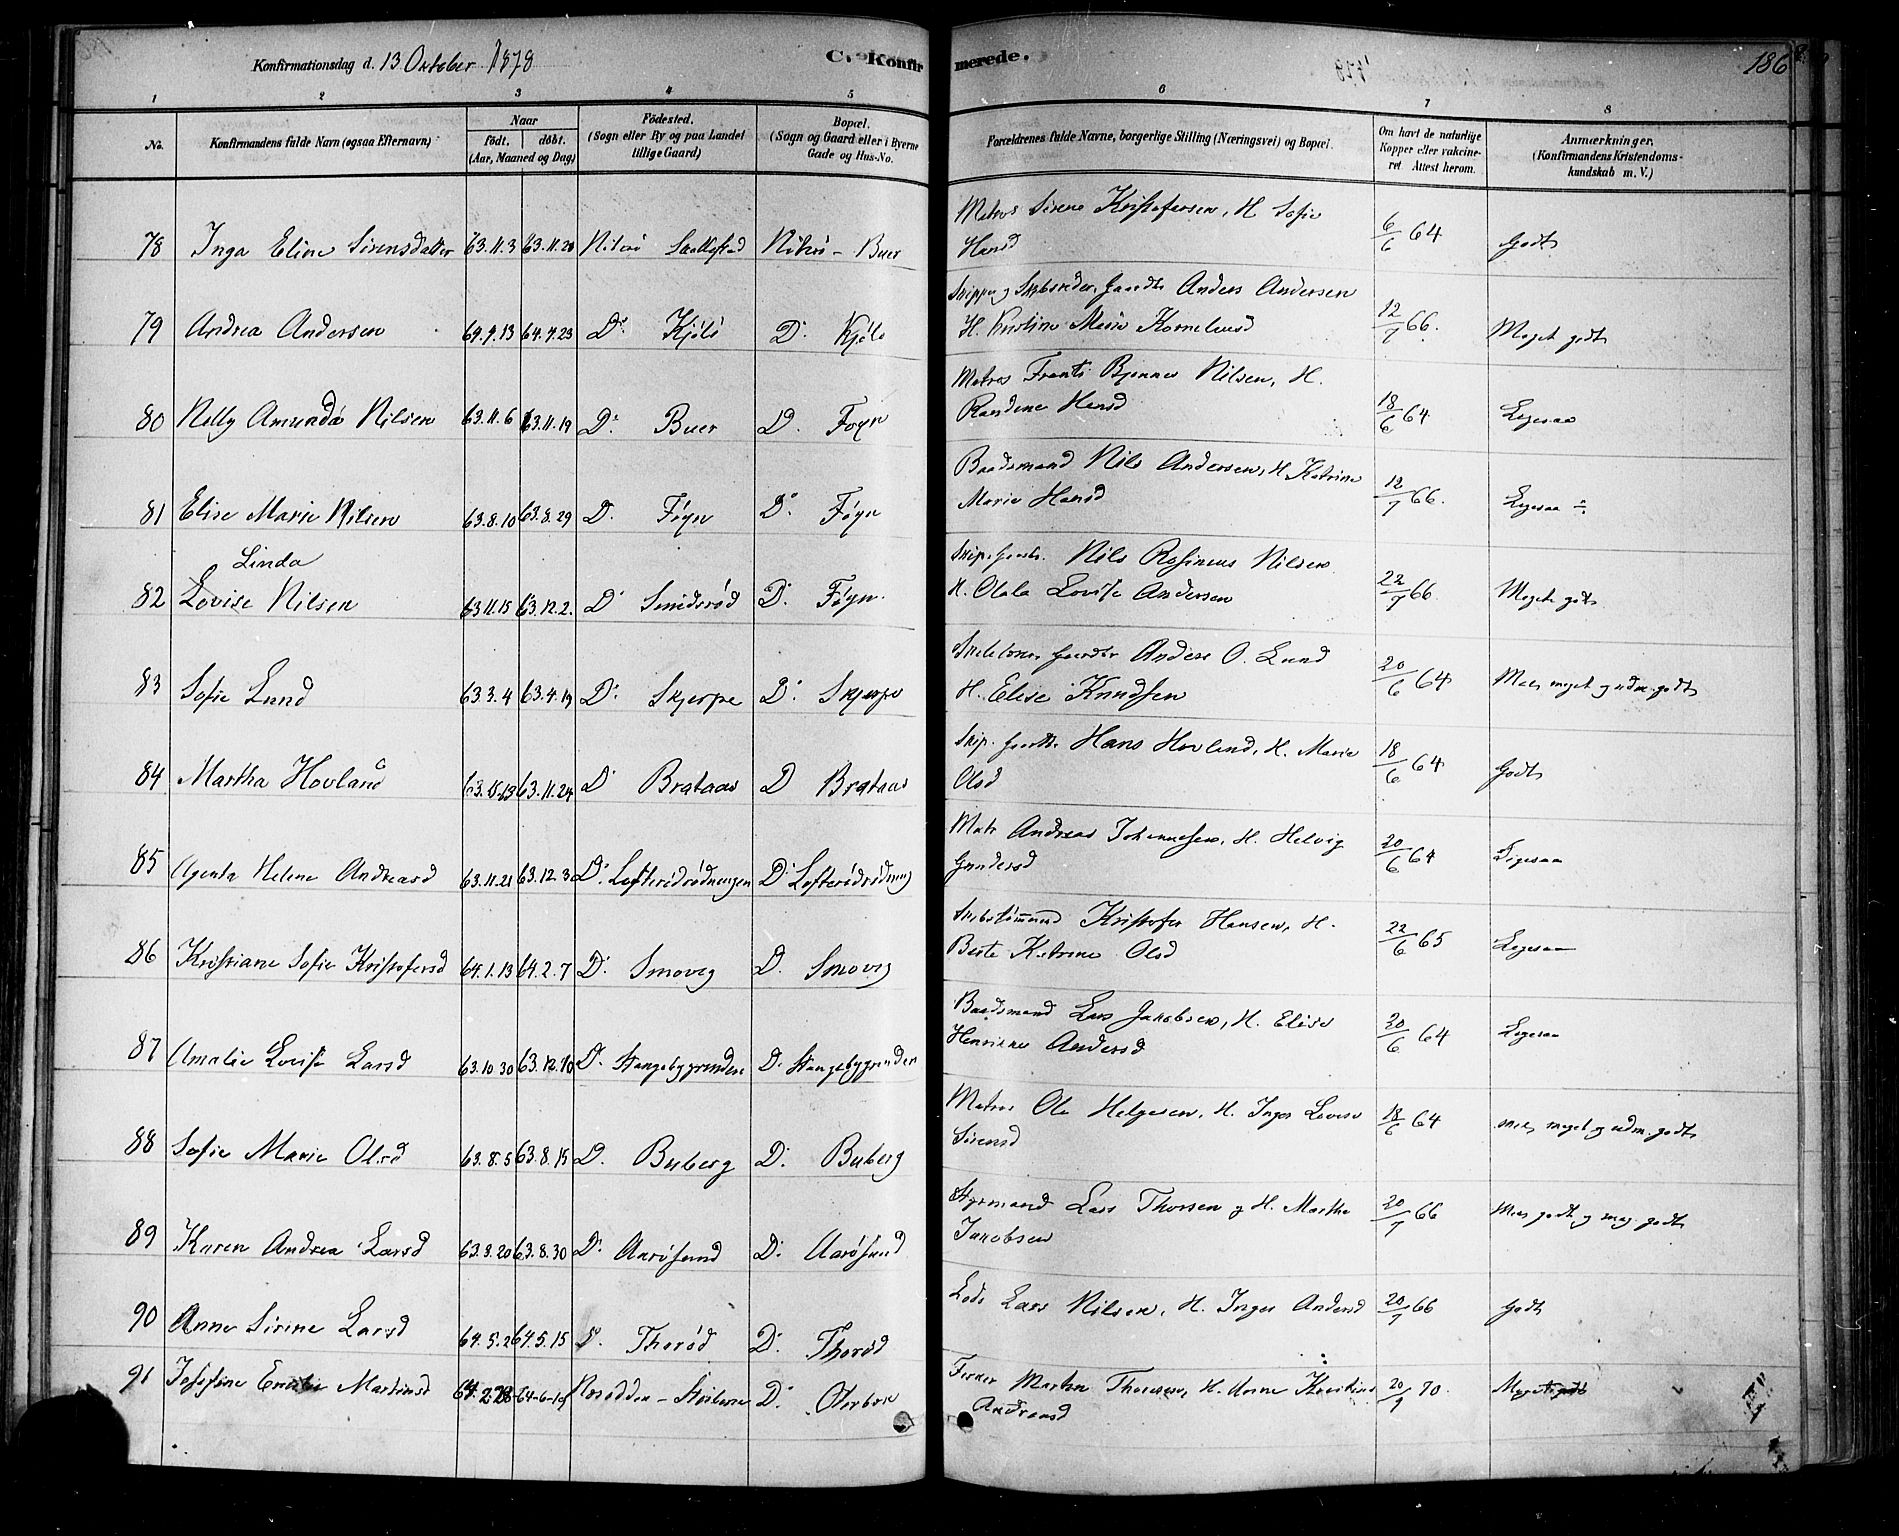 Konfirmationsdag d. 13 October 1878
C. Konfirmerede.
186
1 2 3 4 5 6 7 8
No. Konfirmandens fulde Navn (ogsaa Efternavn) Naar födt. döbt. (Aar, Maaned og Dag) Födested. (Sogn eller By og paa Landet tillige Gaard) Bopæl. (Sogn og Gaard eller i Byerne Gade og Hus-No. Forældrenes fulde Navne, borgerlige Stilling (Næringsvei) og Bopæl. Om havt de naturlige Kopper eller vakcineret. Attest herom. Anmærkninger. (Konfirmandens Kristendomskundskab m. V.)
78 Inga Eline Sirensdatter 63.11.3 63.11.20 Buer Matros Sirene Kristofersen, H. Sofie Hansd 6/6 64 Godt
79 Andrea Andersen 64.4.23 D: Kjölö D: Kjölö Anders Andersen H. Kristine Marie Kornelusd 12/7 66. Meget godt
80 Nelly Amunda Nilsen 63.11.6 63.11.19 D: Buer D. Föyn Matros Nilsen, H. Randine Hansd 18/6 64 Ligesaa
81 Elise Marie Nilsen 63.8.10 63.8.29 D. Föyn D: Föyn Baadsmand Nils Andersen, H. Katrine Marie Hansd 12/7 66. Ligesaa ÷
82 Linda Lovise Nilsen 63.11.15 63.12.2. D: Smidsröd D: Föyn Nils Rasinius Nilsen H. Olala Lovise Andersen 22/7 66 Meget godt
83 Sofie Lund 63.3.4 63.4.19 D: Skjerpe D: Skjerpe Anders O. Lund H. Elise Knudsen 20/6 64 meget g udm. godt
84 Martha Hovland 63.11.24 D: Brataas D Brataas Hans Hovland, H. Marie Olsd 18/6 64 Godt
85 Agenta Helene Andreasd 63.11.21 63.12.3 D: Lofterödrödningen D: Lofterödrödning Matr Andreas Johannesen, H. Helvig Gundersd 20/6 64 Ligesaa
86 Kristiane Sofie Kristofersd 64.1.13 64.2.7 D: Smovig D. Smovig Kristofer Hansen, H. Katrine Olsd 22/6 65 Ligesaa
87 Amalie Lovise Larsd 63.10.30 63.12.10 D. Stangebygrunden D. Stangebygrunden Baadsmand Lars Jakobsen, H. Elise Andersd 20/6 64 Ligesaa
88 Sofie Marie Olsd 63.8.5 63.8.15 D. Buberg D: Buberg Matros Ole Helgesen, H. Inger Lovise Sirensd 18/6 64 meget g udm. godt
89 Karen Andrea Larsd 63.8.30 D: Aarösund D: Aarösund Styrmand Lars Thorsen g H. Martha Jakobsen 20/7 66 godt g meg. godt
90 Anne Sirine Larsd 64.5.2 64.5.15 D. Thoröd D: Thoröd Lods Lars Nilsen, H. Inger Andersd 20/7 66 Godt
91 Josefine Emilie Martinsd 64-6-19 D: Martin H. Anne Andreasd 20/9 70. Meget godt